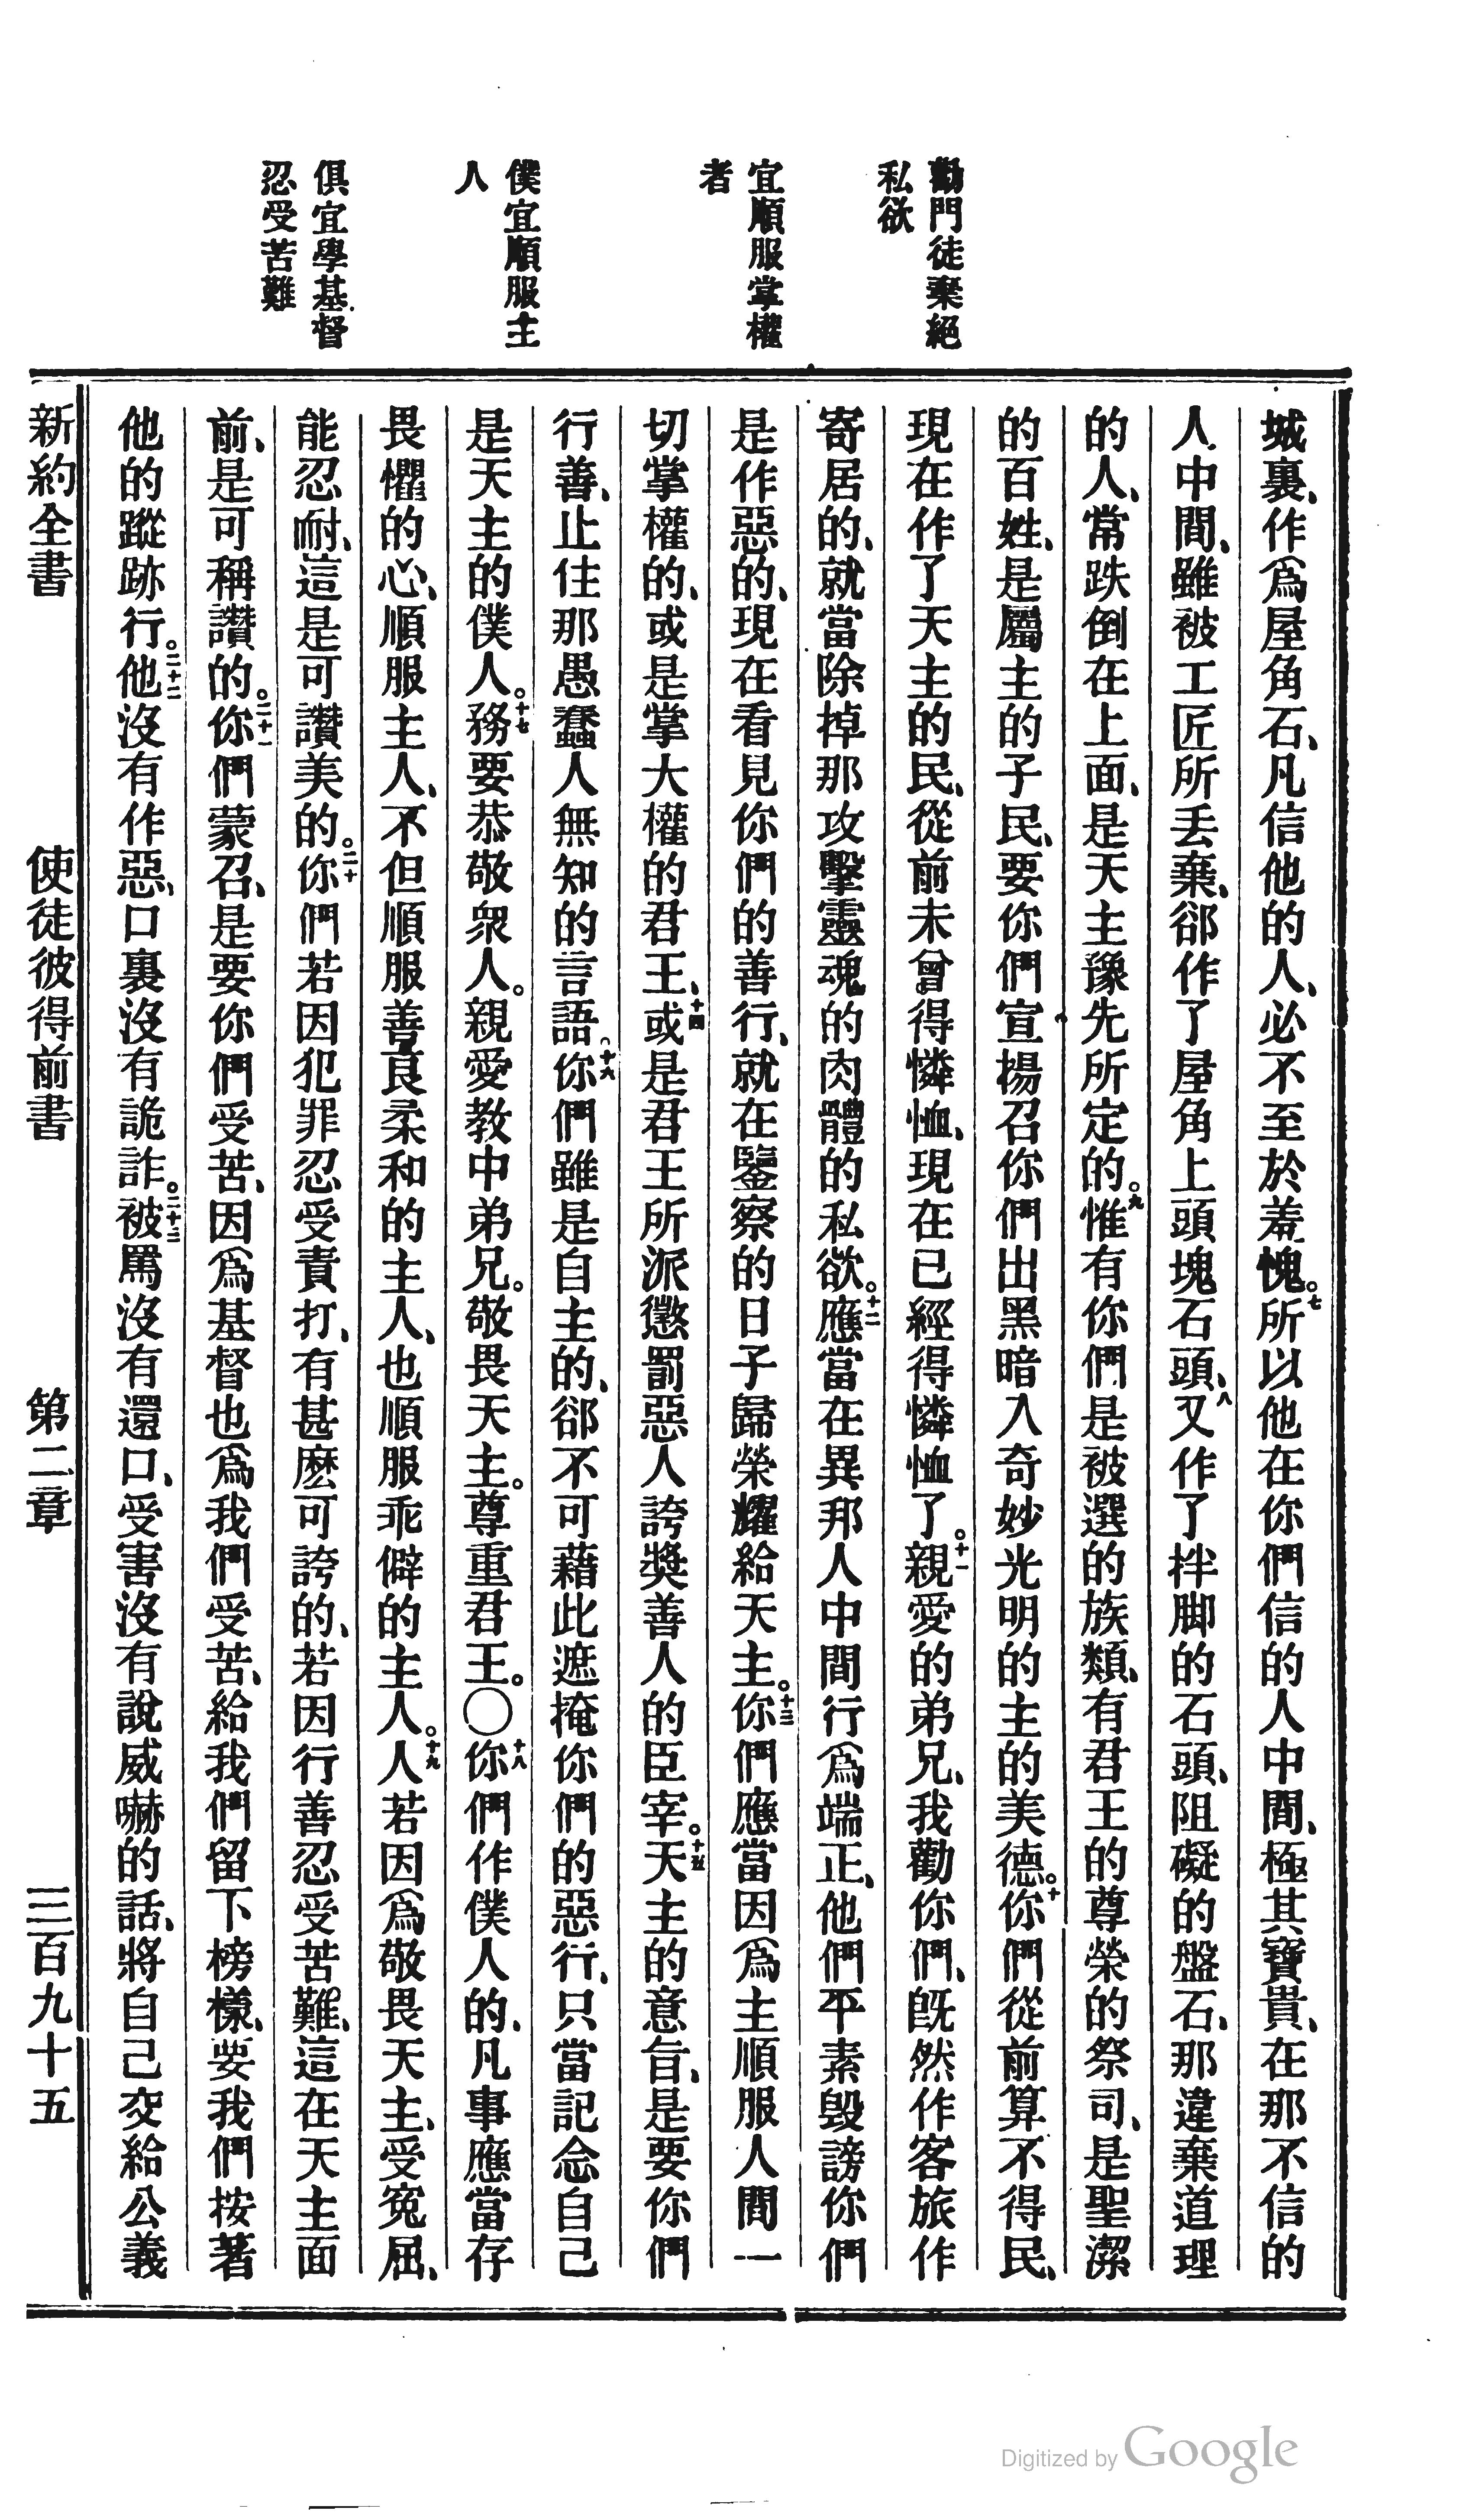 勸門徒棄絕
私欲
宜順服掌權
者
僕宜順服主
人
俱宜學基督
忍受苦難
城裏、作爲屋角石、凡信他的人、必不至於羞愧。七所以他在你們信的人中間、極其寶貴、在那不信的
人中間、雖被工匠所丢棄、郤作了屋角上頭塊石頭、八又作了拌脚的石頭、阻礙的盤石、那違棄道理
的人、常跌倒在上面、是天主豫先所定的。九惟有你們是被選的族類、有君王的尊榮的祭司、是聖潔
的百姓、是屬主的子民、要你們宣揚召你們出黑暗入奇妙光明的主的美德。十你們從前算不得民、
現在作了天主的民、從前未曾得憐恤、現在已經得憐恤了。十一親愛的弟兄、我勸你們、旣然作客旅作
寄居的、就當除掉那攻擊靈魂的肉體的私欲。十二應當在異邦人中間行爲端正、他們平素毀謗你們
是作惡的、現在看見你們的善行、就在鑒察的日子歸榮耀給天主。十三你們應當因爲主順服人間一
切掌權的、或是掌大權的君王、十四或是君王所派懲罰惡人誇獎善人的臣宰。十五天主的意旨、是要你們
行善、止住那愚蠢人無知的言語。十六你們雖是自主的、郤不可藉此遮掩你們的惡行、只當記念自己
是天主的僕人。十七務要恭敬衆人。親愛教中弟兄。敬畏天主。尊重君王。〇十八你們作僕人的、凡事應當存
畏懼的心、順服主人、不但順服善良柔和的主人、也順服乖僻的主人。十九人若因爲敬畏天主、受寃屈、
能忍耐、這是可讚美的。二十你們若因犯罪忍受責打、有甚麽可誇的、若因行善忍受苦難、這在天主面
前、是可稱讚的。二十一你們蒙召、是要你們受苦、因爲基督也爲我們受苦、給我們留下榜樣、要我們按著
他的蹤跡行。二十二他沒有作惡、口裏沒有詭詐。二十三被罵沒有還口、受害沒有說威嚇的話、將自己交給公義
新約全書　使徒彼得前書　第二章　三百九十五
Digitized by Google